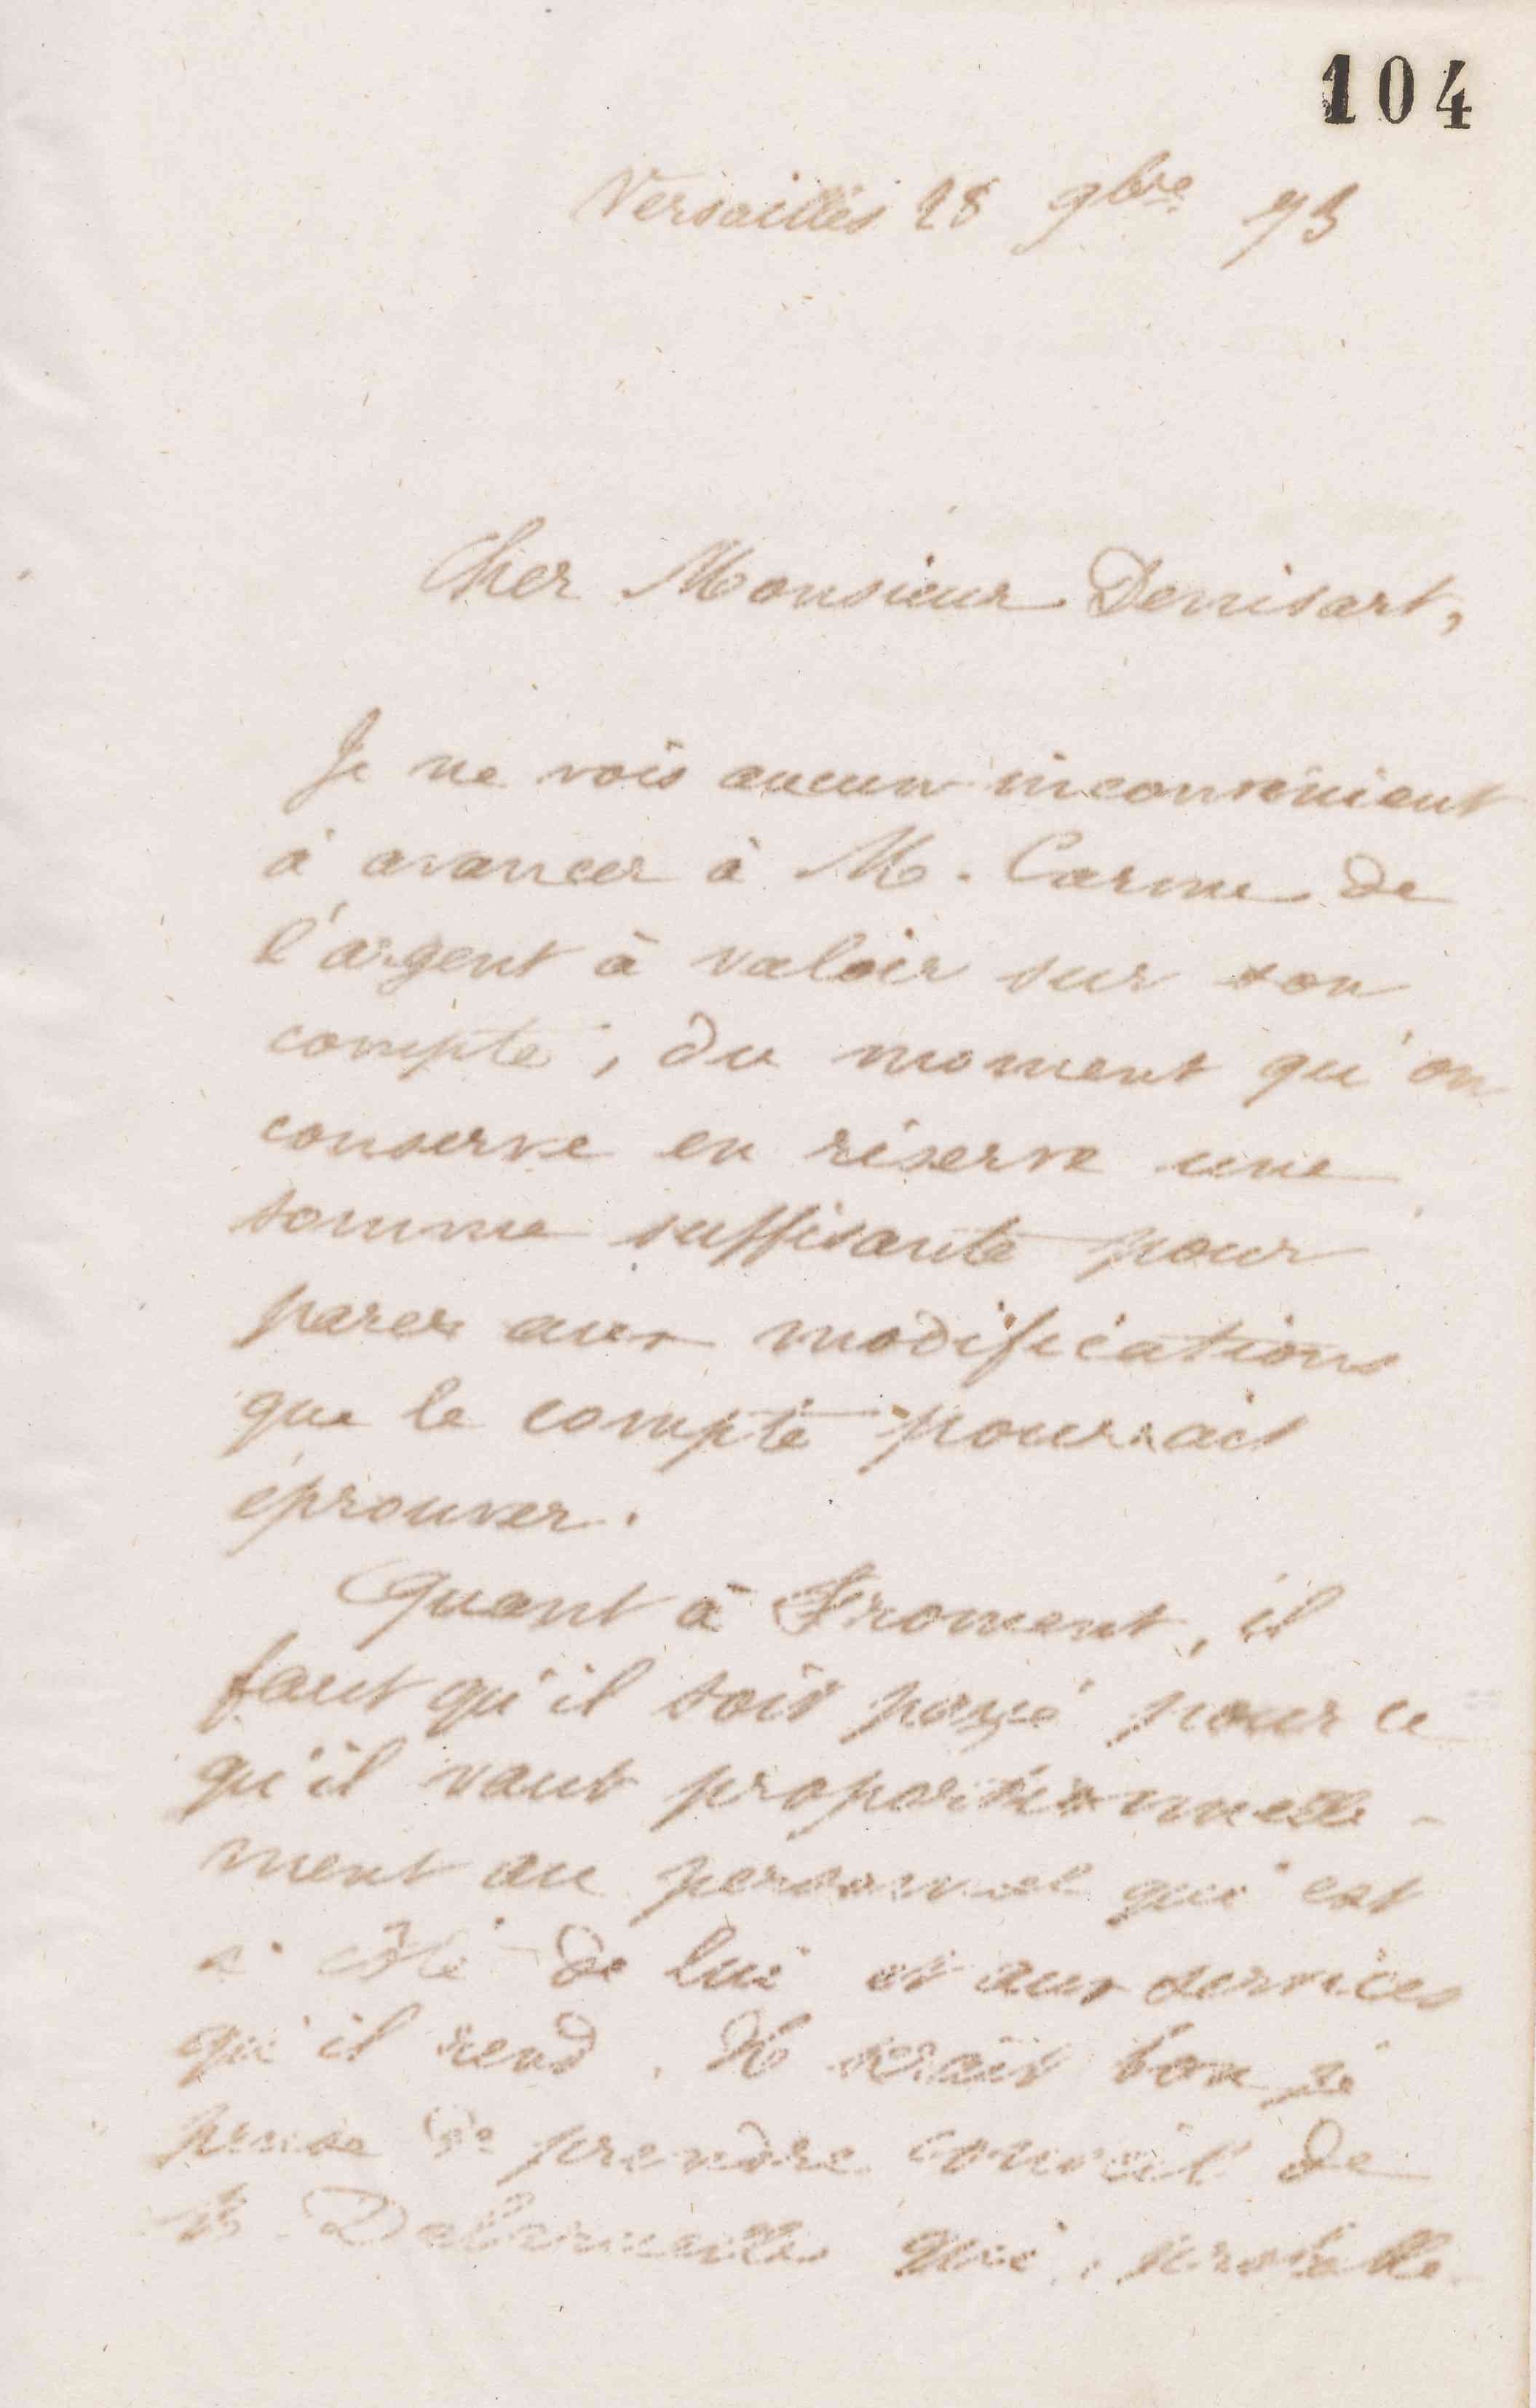 104
Versailles 28 9bre 73
Cher Monsieur Denisart,
Je ne vois aucun inconvénient
à avancer à M. Carme de
l'argent à valoir sur son
compte, du moment qu'on
conserve en réserve une
somme suffisante pour
parer aux modifications
que le compte pourrait
éprouver.
Quant à Froment, il
faut qu'il soit payé pour ce
qu'il vaut proportionnelle-
ment au personnel qui est
à côté de lui et aux services
qu'il rend. Il serait bon je
pense de prendre conseil de
M. qui, probable